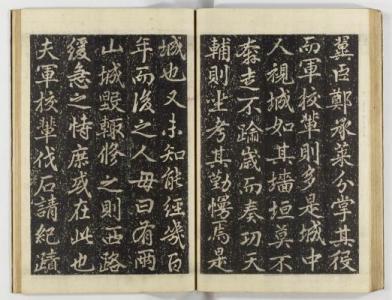 冀臣鄭承棻分掌其役
而軍校輩則多是城中
人視城如其墻垣莫不
奔走不踰歲而奏功天
輔則坐考其勤慢焉是
城也又未知能經幾百
年而後之人毋曰有兩
山城毀輒修之則西路
緩急之恃庶或在此也
夫軍校輩伐石請紀蹟